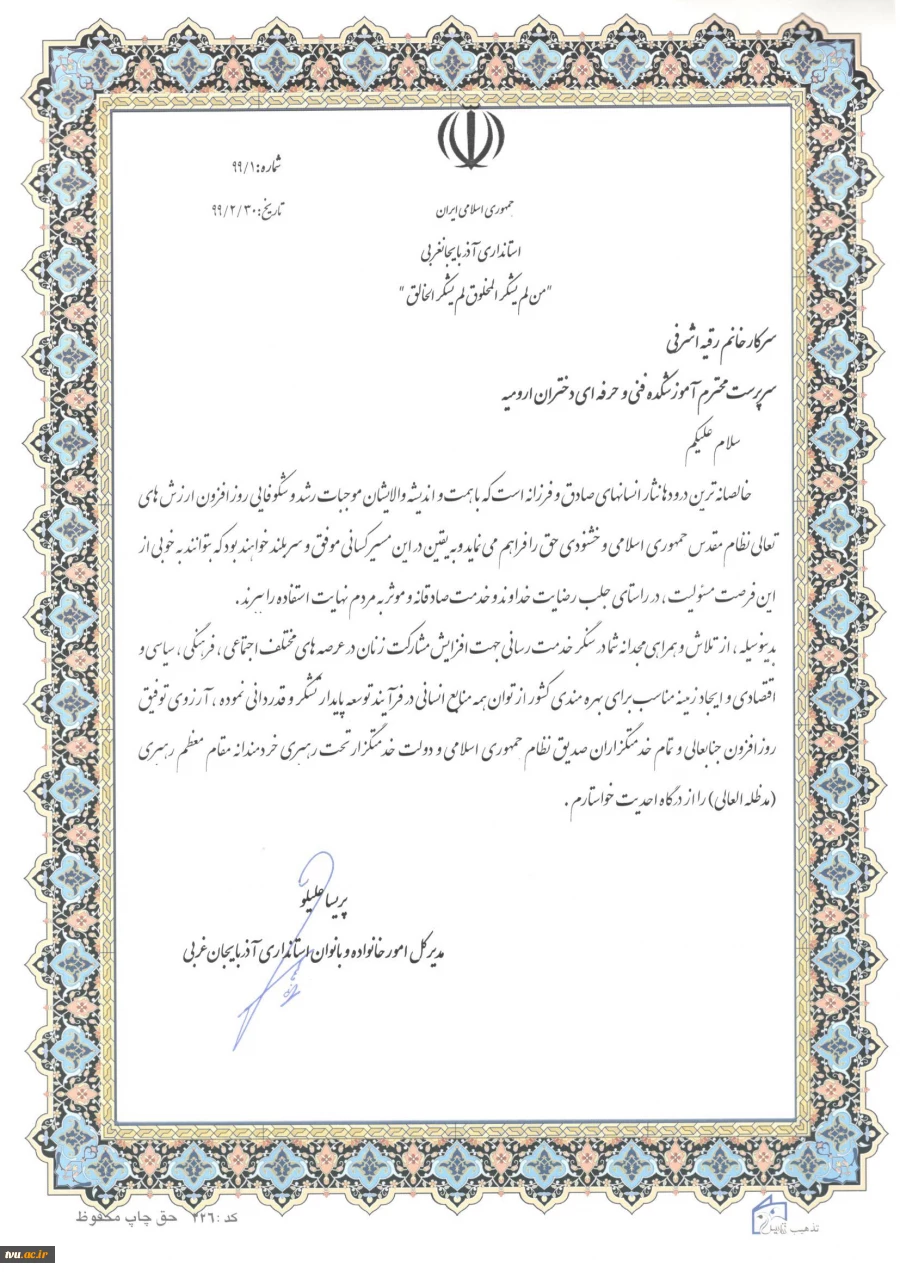 شماره: ۹۹/۱
تاریخ: ۹۹/۲/۳۰
جمهوری اسلامی ایران
استانداری آذربایجانغربی
"من لم یشکر المخلوق لم یشکر الخالق"
سرکار خانم رقیه اشرفی
سرپرست محترم آموزشکده فنی و حرفه ای دختران ارومیه
سلام علیکم
خالصانه ترین درودها نثار انسانهای صادق و فرزانه است که با همت و اندیشه والایشان موجبات رشد و شکوفایی روز افزون ارزش های
تعالی نظام مقدس جمهوری اسلامی و خشنودی حق را فراهم می نماید و به یقین در این مسیر کسانی موفق و سربلند خواهند بود که بتوانند به خوبی از
این فرصت مسئولیت، در راستای جلب رضایت خداوند و خدمت صادقانه و موثر به مردم نهایت استفاده را ببرند.
بدینوسیله، از تلاش و همراهی مجدانه شما در سنگر خدمت رسانی جهت افزایش مشارکت زنان در عرصه های مختلف اجتماعی، فرهنگی، سیاسی و
اقتصادی و ایجاد زمینه مناسب برای بهره مندی کشور از توان همه منابع انسانی در فرآیند توسعه پایدار تشکر و قدردانی نموده، آرزوی توفیق
روز افزون جنابعالی و تمام خدمتگزاران صدیق نظام جمهوری اسلامی و دولت خدمتگزار تحت رهبری خردمندانه مقام معظم رهبری
(مدظله العالی) را از درگاه احدیت خواستارم.
پریسا علیلو
مدیر کل امور خانواده و بانوان استانداری آذربایجان غربی
کد: ۲۲۶ حق چاپ محفوظ
تذهیب
tvu.ac.ir